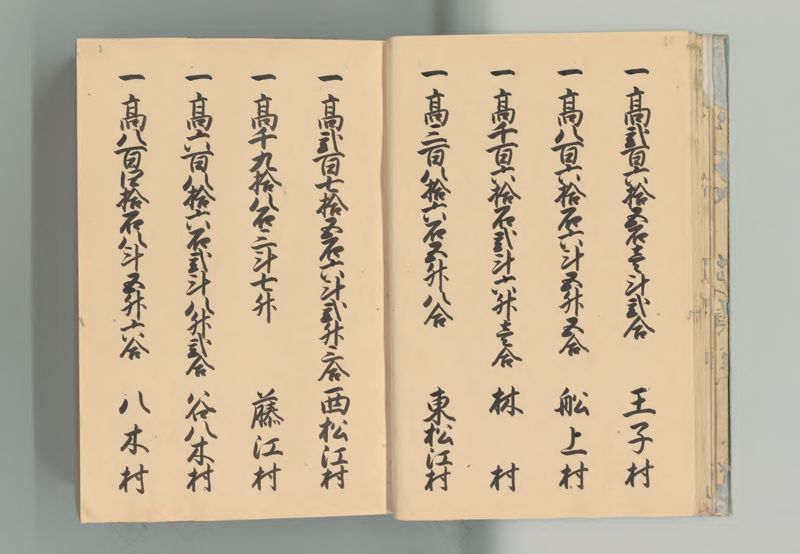 一高弐百六拾五石壱斗弐合 王子村
一高八百六拾石六斗五升五合 船上村
一高千百六拾石弐斗六升壱合 林村
一高二百八拾六石五升八合 東松江村
一高弐百七拾五石六斗弐升二合 西松江村
一高千九拾八石二斗七升 藤江村
一高六百八拾六石弐斗八升弐合 谷八木村
一高八百四拾石八斗五升六合 八木村